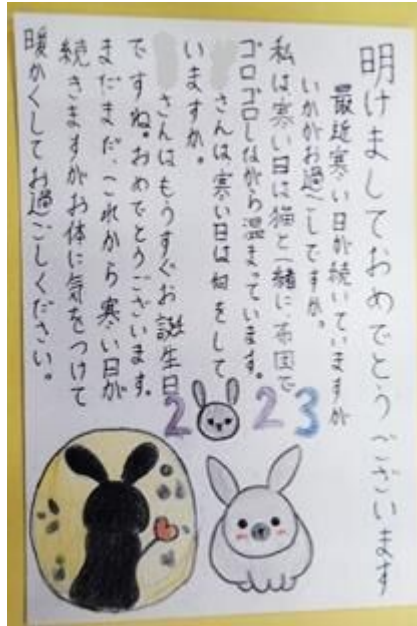 明けましておめでとうございます
最近寒い日が続いていますが
いかがお過ごしですか。
私は寒い日は猫と一緒に布団で
ゴロゴロしながら温まっています。
さんは寒い日は何をして
いますか。
さんはもうすぐお誕生日
ですね。おめでとうございます。
まだまだ、これから寒い日が
続きますがお体に気をつけて
暖かくしてお過ごしください。
2 23